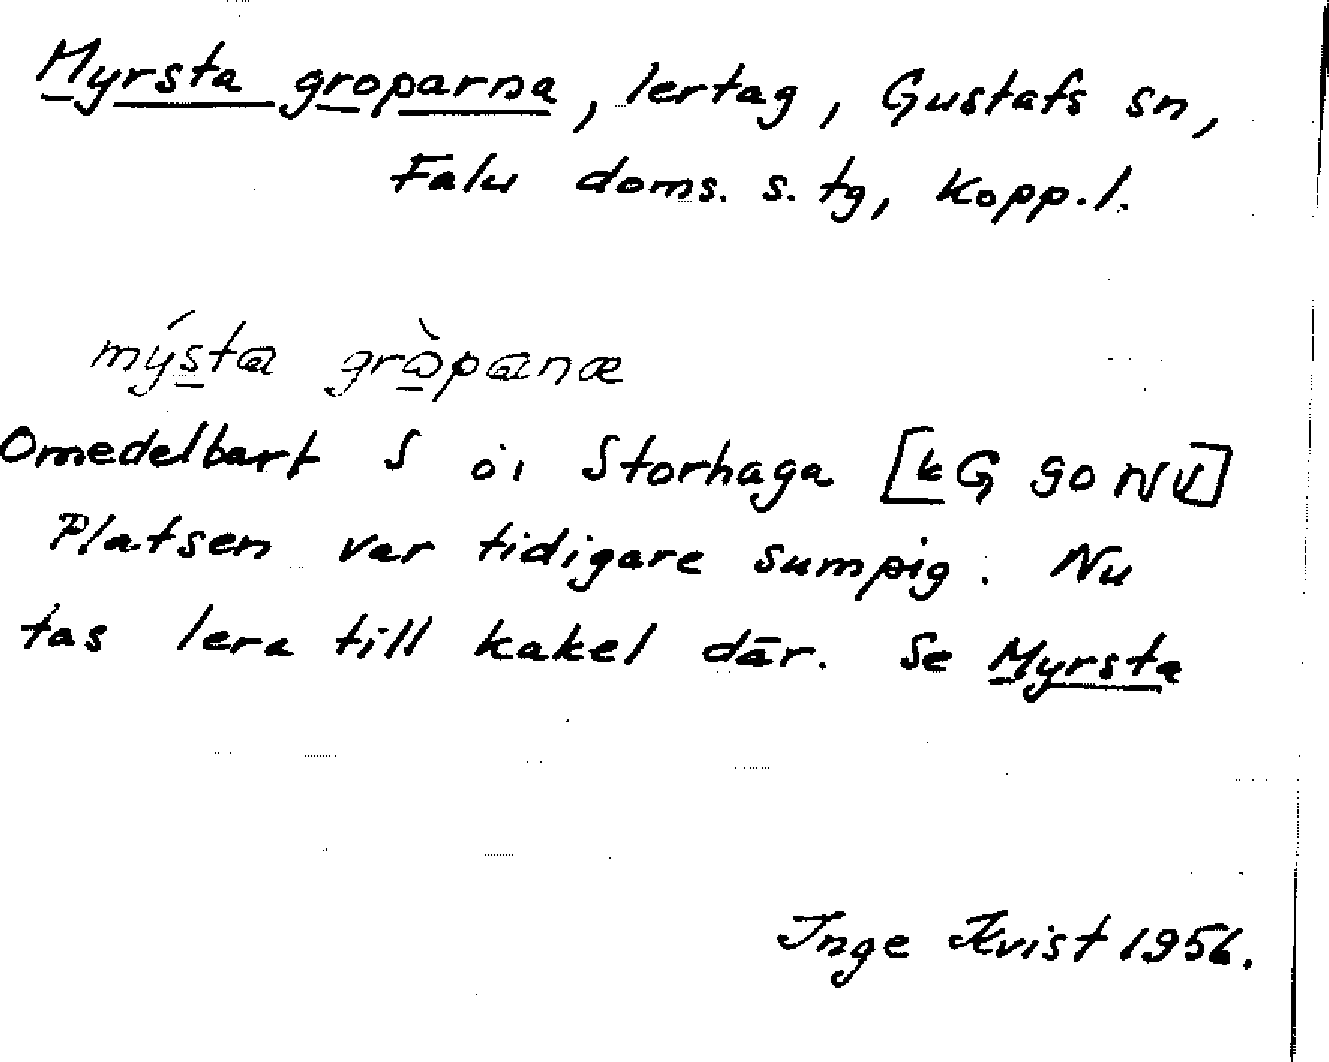 Myrsta groparna, lertag, Gustafs sn,
Falu doms. s. tg, Kopp.l.
mýsta gròpanæ
Omedelbart S öi Storhaga [kG 90 NV]
Platsen var tidigare sumpig. Nu
tas lera till kakel där. Se Myrsta
Inge Kvist 1956.